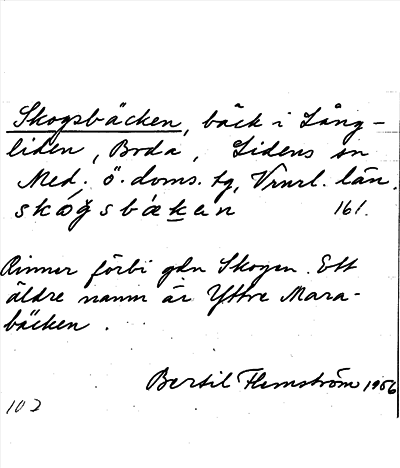 Skogsbäcken, bäck i Lång-
liden, Boda, Lidens sn
Med. ö. doms. tg, Vnrl. län.
skógsbäkan 161.
Rinner förbi gdn Skogen. Ett
äldre namn är Yttre Mara-
bäcken.
Bertil Flemström 1956
102